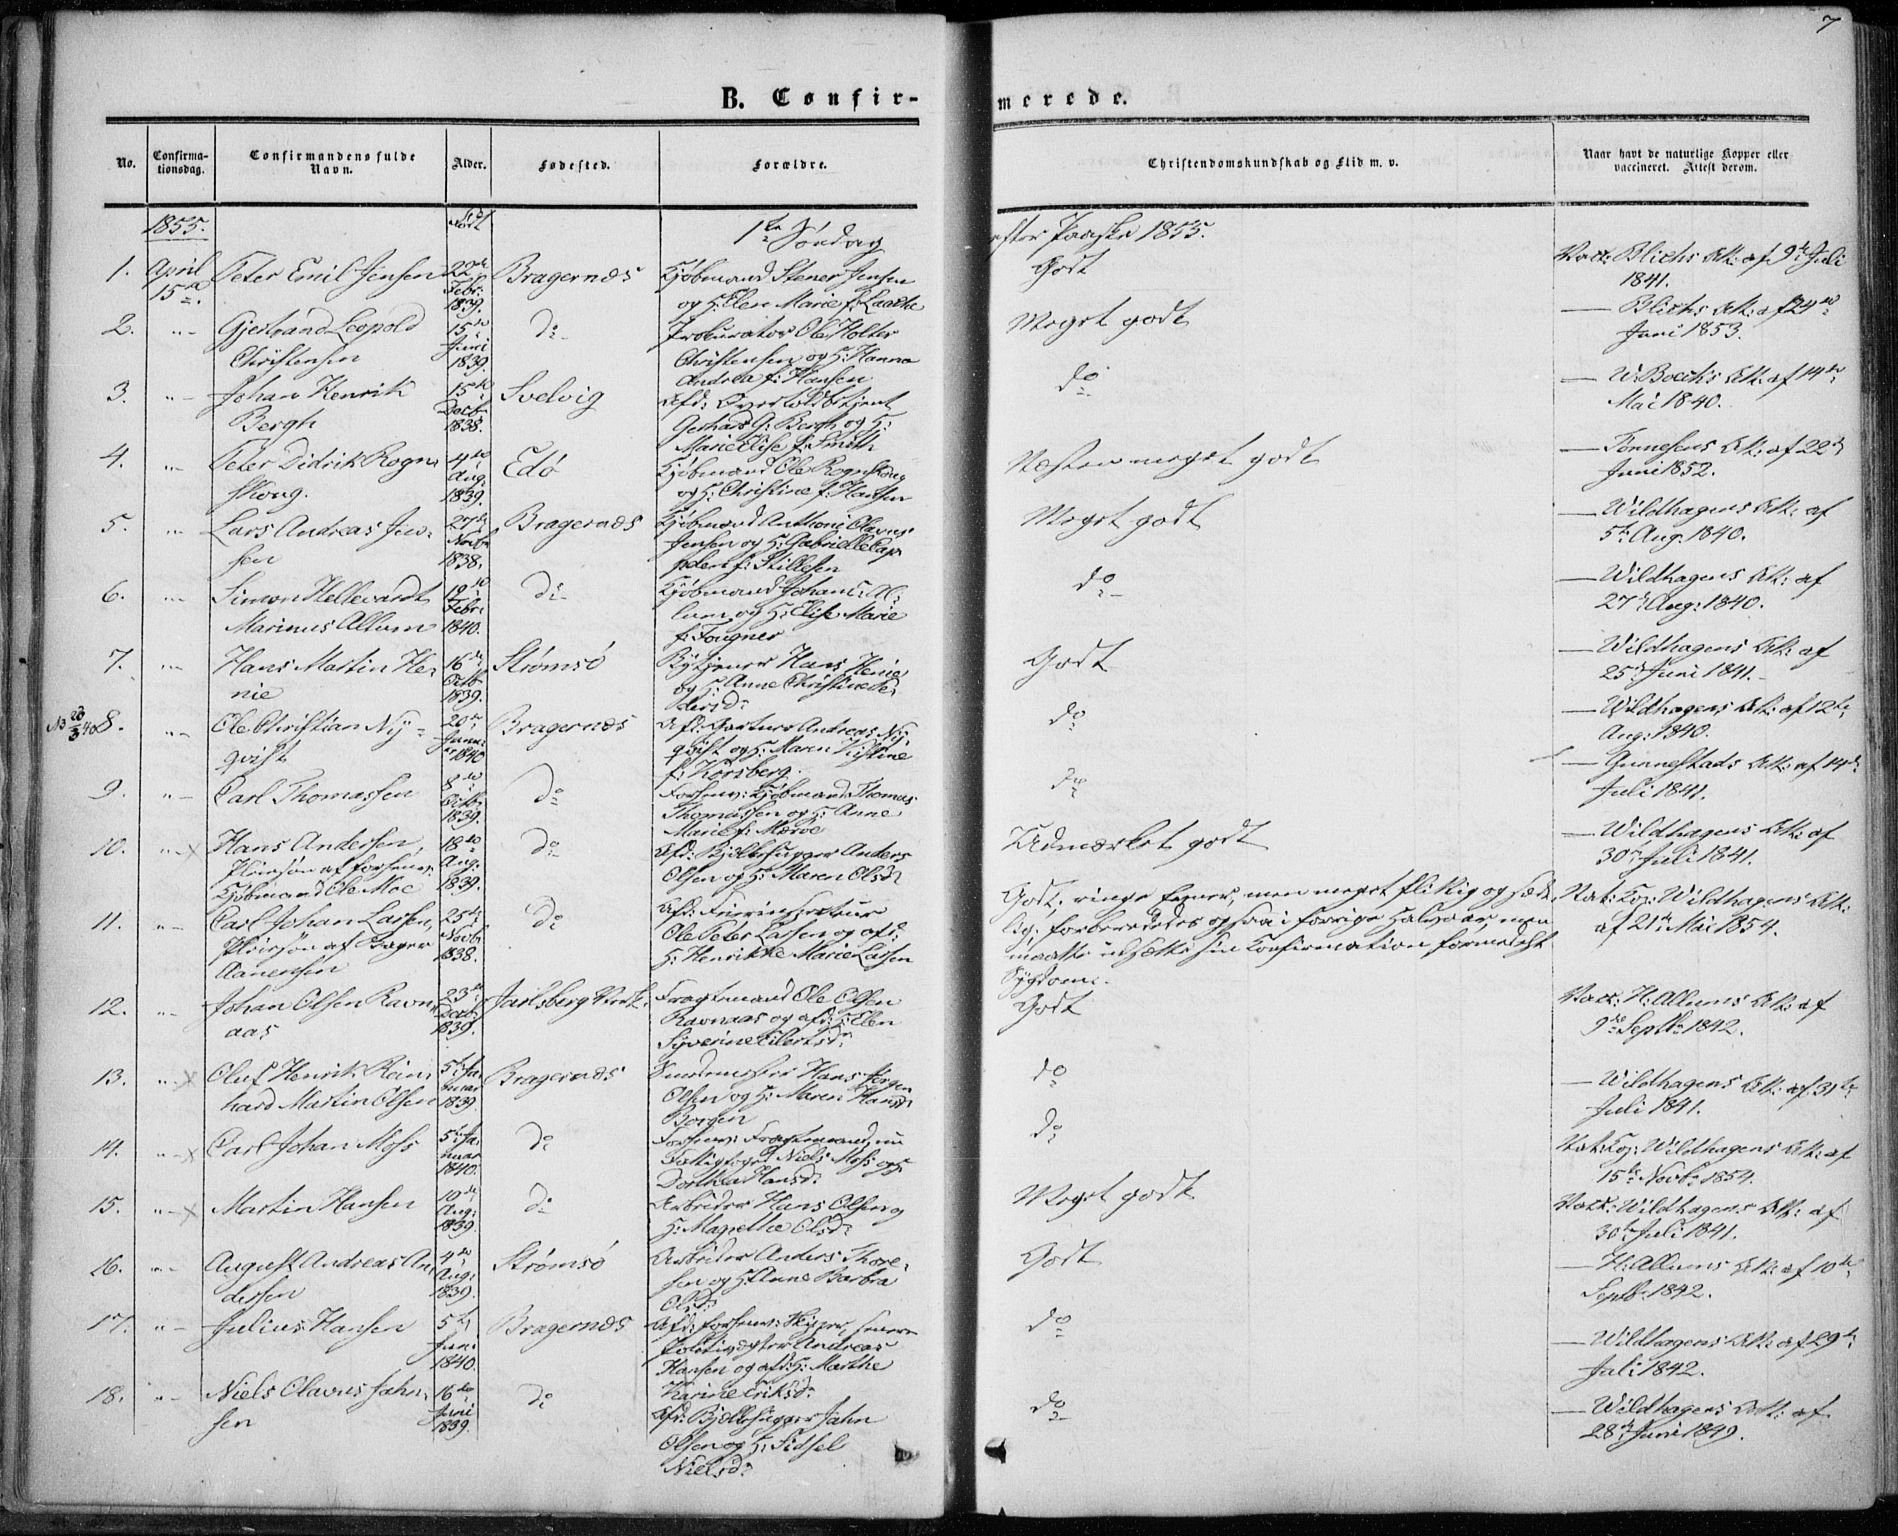 7
B. Confir-
merede.
No.
Confirma-
tionsdag.
Confirmandens fulde
Navn.
Alder.
Fødested.
Forældre.
Christendomskundskab og Flid m. v.
Naar havt de naturlige Kopper eller
vaccineret. Attest derom.
1855.
Født
1te Søndag
efter Paaske 1855.
1. April 15de Peter Emil Jensen 22de Febr: 1839. Bragernæs Kjøbmand Stener Jensen
og H: Elen Marie f: Godt Vacc: Blichs Att: af 9de Juli
1841.
2. "- Gjertrand Leopold
Christensen 15de Juni 1839. do Prokurator Ole Holter
Christensen og H: Hanna
Andrea f: Hansen Meget godt — Blichs Att: af 24de
Juni 1853.
3. "- Johan Henrik
Bergh 15de Decbr 1838. Svelvig Afd: Overtoldbetjent
Gerhard G: Bergh og H:
Marie Elise f: Smith do — W. Boecks Att: af 14de
Mai 1840.
4. "- Peter Didrik Rogn-
skoug. 4de Aug. 1839. Edø Kjøbmand Ole Rognskoug
og H: Christine f: Hansen Næsten meget godt — Tønnesens Att: af 22de
Juni 1852.
5. "- Lars Andreas Jen-
sen 27de Novb 1838. Bragernæs Kjøbmand Anthoni Olavus
Jensen og H: Gabrielle Cap-
pelen f: Stillesen Meget godt — Wildhagens Att: af
5te Aug. 1840.
6. "- Simon Hellevardt
Marinus Allum 19de Febr: 1840. do Kjøbmand Johan C: Al-
lum og H: Elise Marie
f: Fougner do — Wildhagens Att: af
27de Aug: 1840.
7. "- Hans Martin He-
nie 16de Octb 1839. Strømsø Bytjener Hans Henie
og H: Anne Christine Pe-
dersd: Godt — Wildhagens Att: af
25de Juni 1841.
8. "- Ole Christian Ny-
qvist 20de Janu-
ar 1840 Bragernæs Afd: Gartner Andreas Ny-
qvist og H: Maren Kistine
f: Korsberg. do — Wildhagens Att: af 12te
Aug: 1840.
9. "- Carl Thomassen 8de Octb: 1839. do Forhenv: Kjøbmand Thomas
Thomassen og H: Anne
Marie f: Mærve do — Gunnestads Att: af 14de
Juli 1841.
10. "-x Hans Andersen,
Pleiesøn af forhenv:
Kjøbmand Ole Moe 18de Aug. 1839. do Afd: Bjelkehugger Anders
Olsen og H: Maren Olsd: Udmærket godt — Wildhagens Att: af
30te Juli 1841.
11. "- Carl Johan Lassen,
Pleiesøn af Bager
Aanensen 25de Novb: 1838. do Afd:
Ole Peter Lassen og afd:
H: Henrikke Marie Lassen Godt; ringe Evner, men meget flittig og sæde-
lig; forberededes ogsaa i forrige Halvaar, men
maatte udsætte sin Confirmation formedelst
Sygdom. Nat: Kop: Wildhagens Att:
af 21de Mai 1854.
12. "- Johan Olsen Ravn-
aas 23de Decb: 1839. Jarlsberg Værk Fragtmand Ole Olsen
Ravnaas og afd: H: Elen
Syverine Eilertsd: Godt Vacc: H: Allums Att: af
9de Septbr: 1842.
13. "-x Oluf Henrik Rein-
hard Martin Olsen 5te Ja-
nuar 1839. Bragernæs Snedkermester Hans Jørgen
Olsen og H: Maren Hansd:
Borgen do — Wildhagens Att: af 31te
Juli 1841.
14. "-x Carl Johan Moss 5te Ja-
nuar 1840. do Forhenv: Fragtmand, nu
Fattigfoged Niels Moss og H:
Dorthea Hansd: do Nat: Kop: Wildhagens Att: af
15de Novb: 1854.
15. "-x Martin Hansen 10de Aug: 1839. do Arbeider Hans Olsen og
H: Magrethe Olsd: Meget godt Vacc: Wildhagens Att: af
30te Juli 1841.
16. "- August Andreas An-
dersen 4de Aug: 1839. Strømsø Arbeider Anders Thore-
sen og H: Anne Barbra
Olsd: Godt — H: Allums Att: af 10de
Septb: 1842.
17. "- Julius Hansen 5te Juni 1840. Bragernæs Afd: forhenv: Skipper, senere
Politivægter Andreas
Hansen og afd: H: Marthe
Karine Eriksd: do — Wildhagens Att: af 29de
Juli 1842.
18. "- Niels Olavus Jahn-
sen 16de Juni 1839. do Afd: Bjelkehugger Jahn
Olsen og H: Sidsel
Nielsd: do — Wildhagens Att: af
28de Juni 1849.